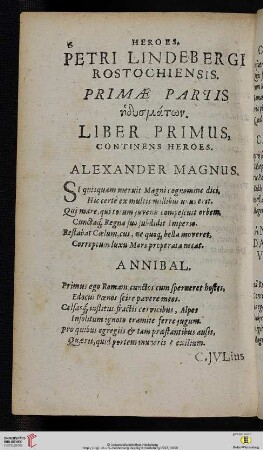 6
HEROES.
PETRI LINDEBERGI
ROSTOCHIENSIS.
PRIMÆ PARTIS
ἡδυσμάτων.
LIBER PRIMUS,
CONTINENS HEROES.
ALEXANDER MAGNUS.
SI quisquam meruit Magni cognomine dici,
Hic certè ex multis millibus unus erit.
Qui mare, qui totum juvenis compescuit orbem,
Cunctaq́; Regna suo subdidit imperio.
Restabat Cœlum, cui, ne quoq; bella moveret,
Correptum luxu Mors properata necat.
ANNIBAL.
Primus ego Romam, cunctos cum sperneret hostes,
Edocui Pœnos scire pavere meos.
Celsaq́; fractis cervicibus, Alpes
Insolitum ignoto tramite ferre jugum.
Pro quibus egregiis & tam præstantibus ausis,
Quæris, quid pretem exilium.
C. JVLius